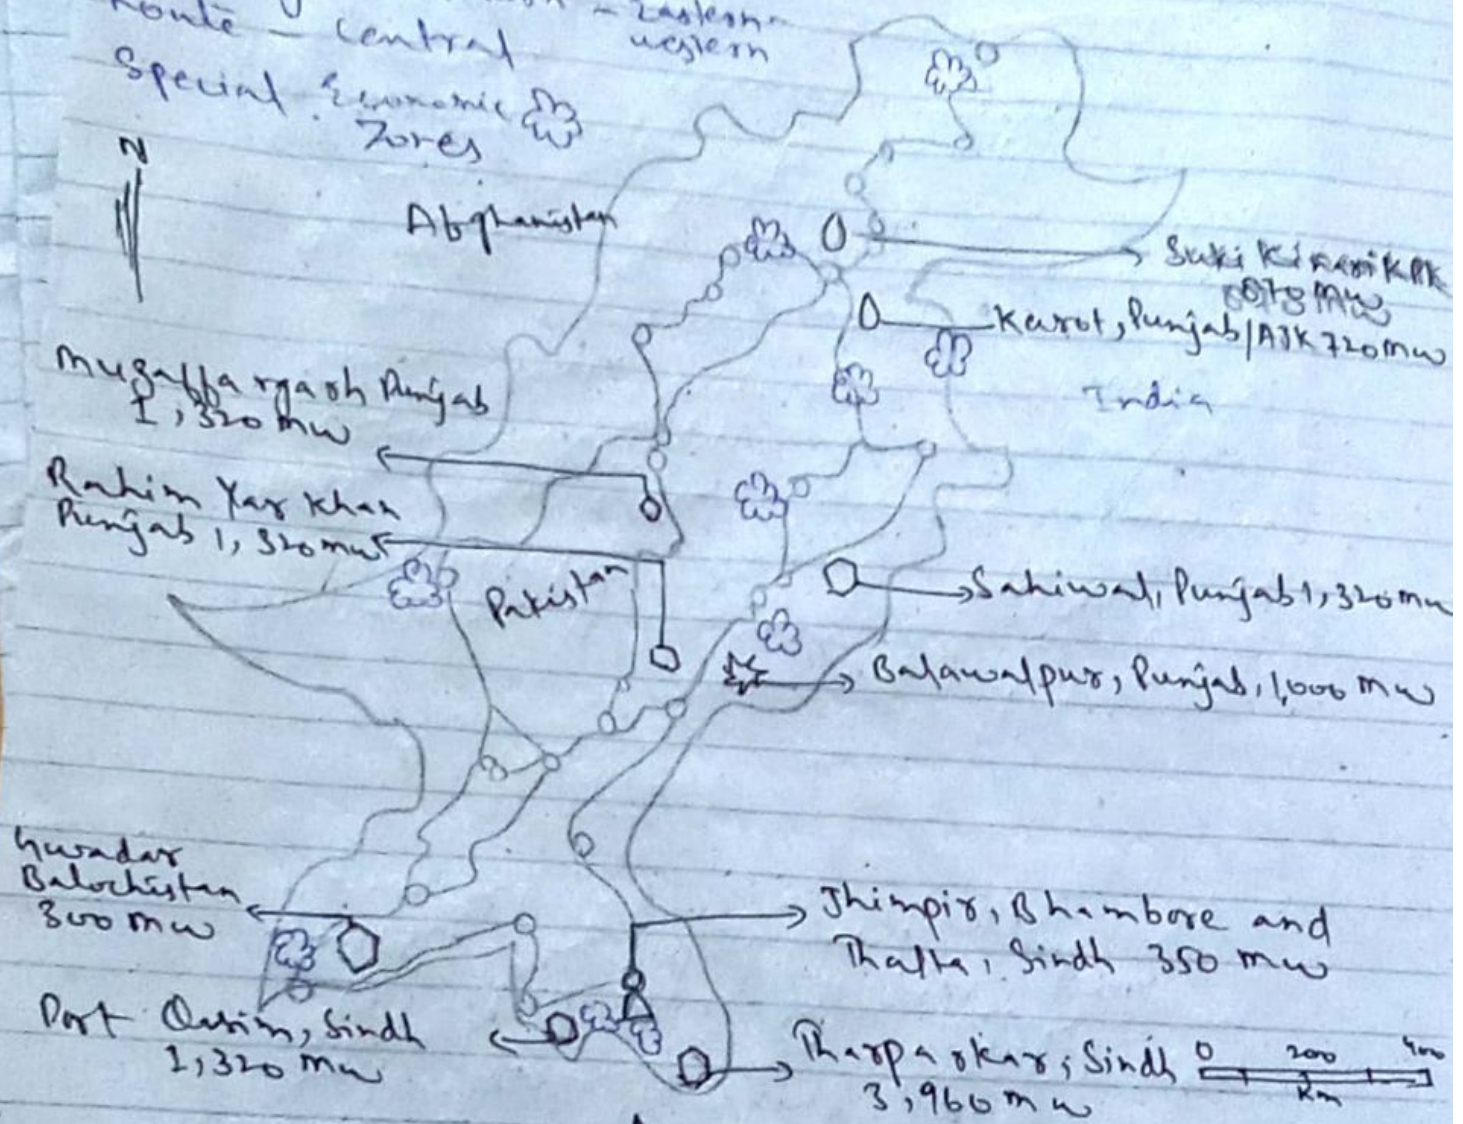 Route - Central
Eastern
western
Special Economic
Zones
N
Afghanistan
Suki Kinari KPK
Karot, Punjab/AJK 720 mw
India
Muzaffargarh Punjab
1,320 mw
Rahim Yar Khan
Punjab 1,320 mw
Pakistan
Sahiwal, Punjab 1,320 mw
Balawalpur, Punjab, 1,000 mw
Gwadar
Balochistan
300 mw
Jhimpir, Bhambore and
Thatta, Sindh 350 mw
Port Qasim, Sindh
1,320 mw
Tharparkar, Sindh
3,960 mw
0 200 400
Km